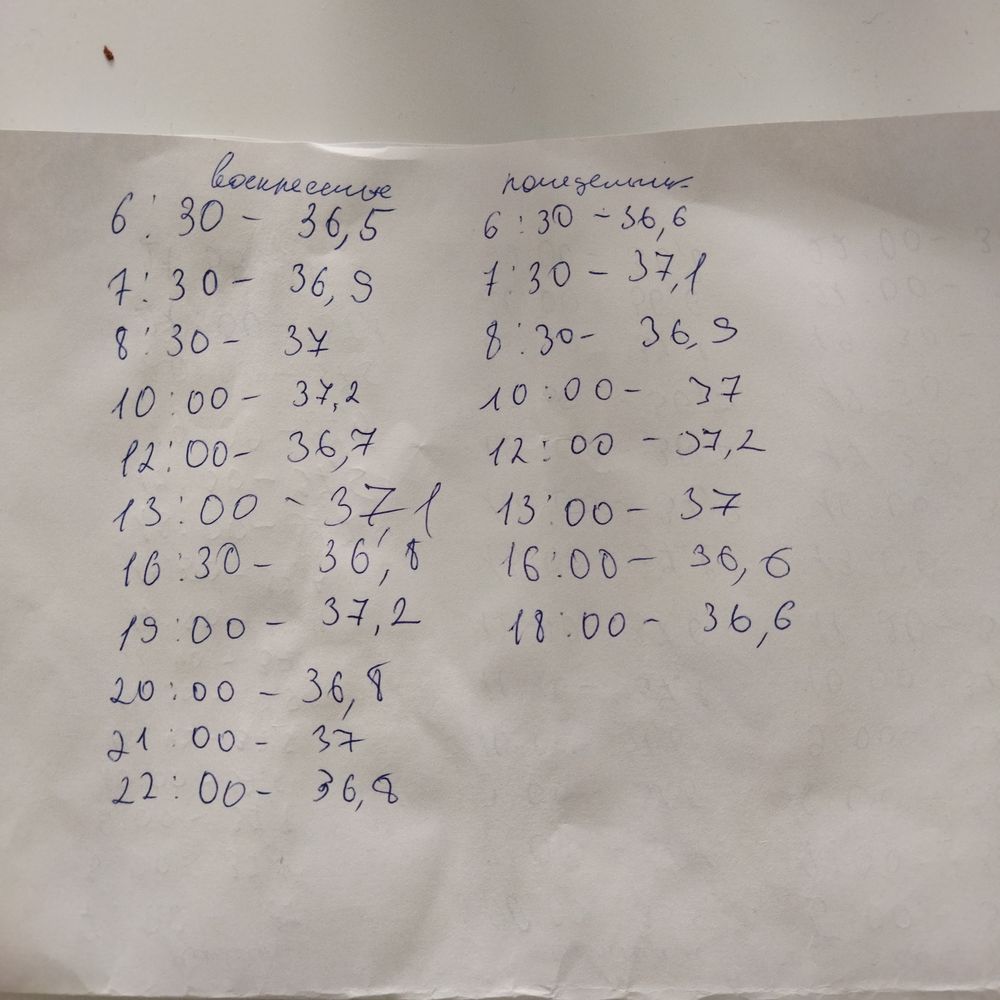 воскресенье
6:30 - 36,5
7:30 - 36,9
8:30 - 37
10:00 - 37,2
12:00 - 36,7
13:00 - 37,1
16:30 - 36,8
19:00 - 37,2
20:00 - 36,8
21:00 - 37
22:00 - 36,8
понедельник
6:30 - 36,6
7:30 - 37,1
8:30 - 36,9
10:00 - 37
12:00 - 37,2
13:00 - 37
16:00 - 36,6
18:00 - 36,6